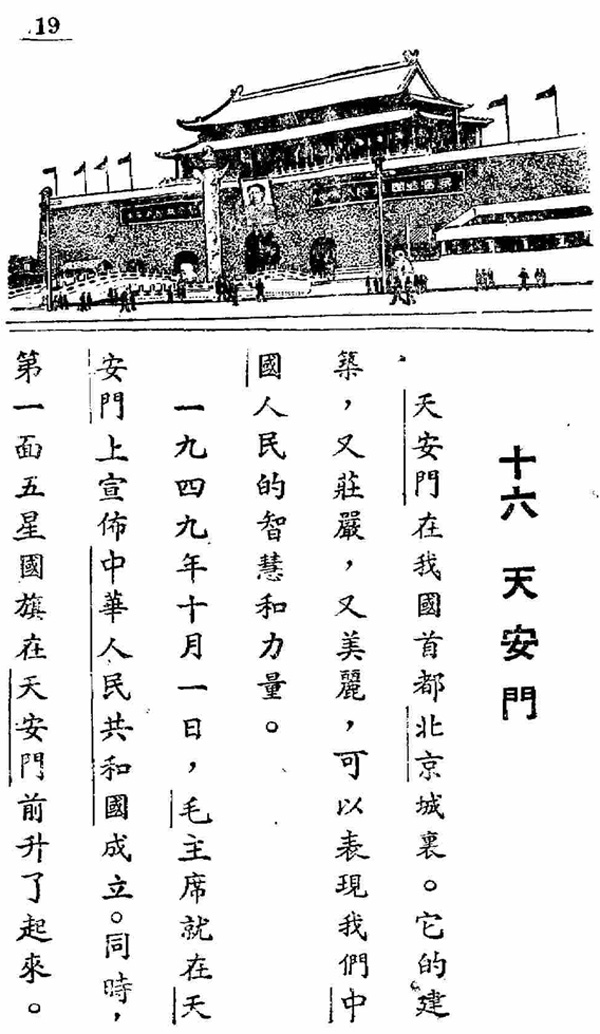 19
十六 天安門
天安門在我國首都北京城裏。它的建
築，又莊嚴，又美麗，可以表現我們中
國人民的智慧和力量。
一九四九年十月一日，毛主席就在天
安門上宣佈中華人民共和國成立。同時，
第一面五星國旗在天安門前升了起來。